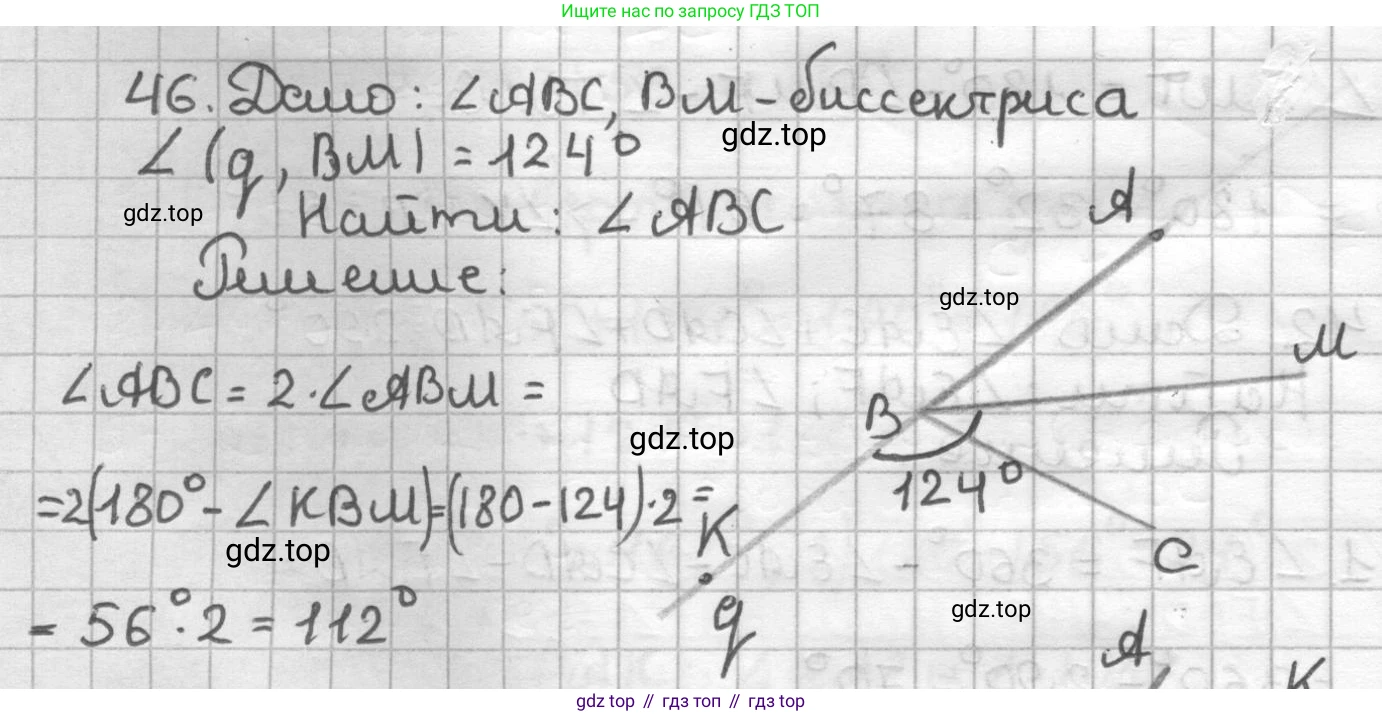 Ищите нас по запросу ГДЗ ТОП
46. Дано: ∠ABC, BM - биссектриса
gdz.top
∠(q, BM) = 124°
gdz.top
Найти: ∠ABC
Решение:
A
gdz.top
M
∠ABC = 2·∠ABM =
B
gdz.top
124°
=2(180° - ∠KBM)=(180-124)·2=
K
gdz.top
C
q
gdz.top
= 56°·2 = 112°
A
K
gdz.top // гдз топ // гдз top